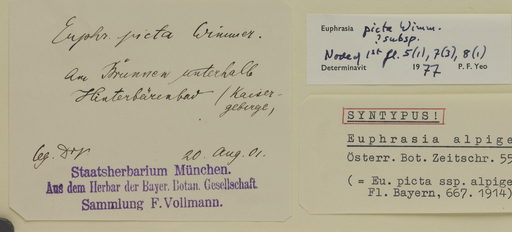 Euphr. picta Wimmer.
Am Brunnen unterhalb
Hinterbärenbad (Kaiser-
gebirge,
leg. Dr V 20. Aug. 01.
Staatsherbarium München.
Aus dem Herbar der Bayer. Botan. Gesellschaft
Sammlung F. Vollmann.
Euphrasia picta Wimm.
? subsp.
Node of 1st fl. 5(1), 7(3), 8(1)
Determinavit 1977 P. F. Yeo
SYNTYPUS!
Euphrasia alpige
Österr. Bot. Zeitschr. 55
(= Eu. picta ssp. alpige
Fl. Bayern, 667. 1914)